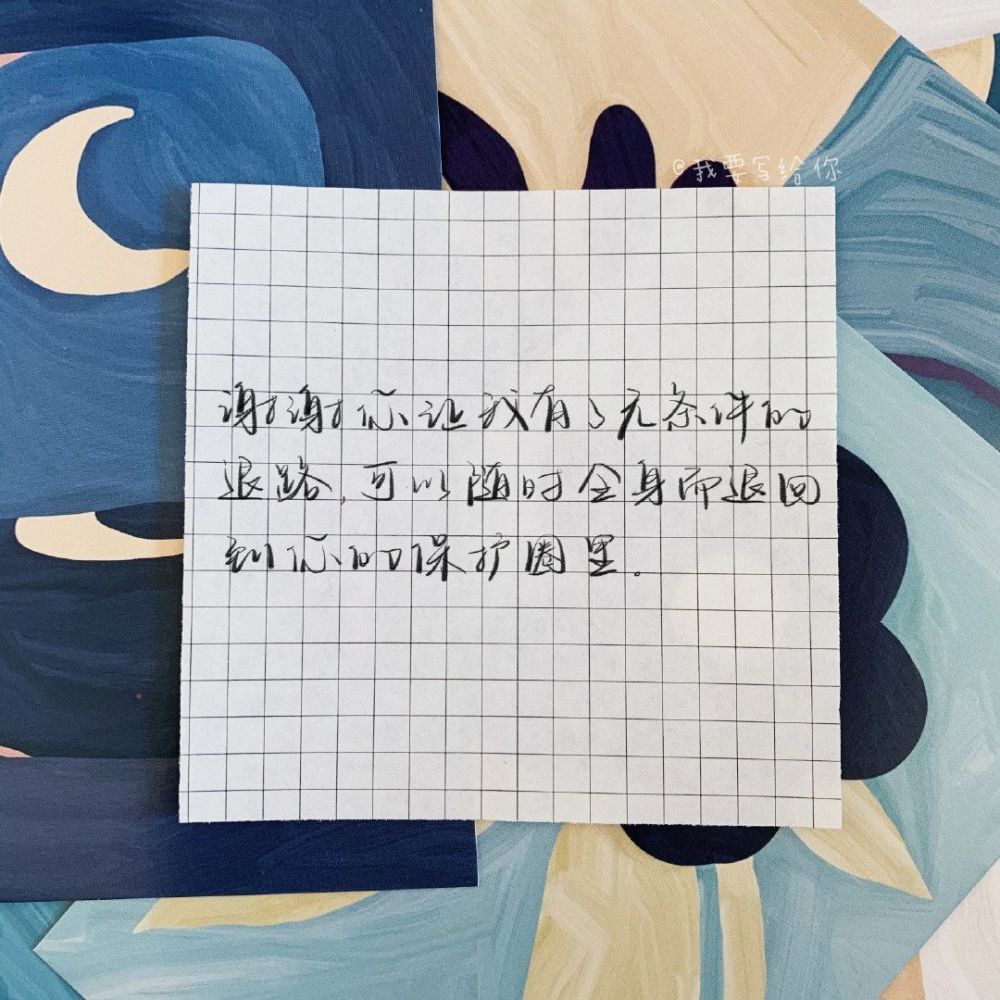 @我要写给你
谢谢你让我有了无条件的
退路，可以随时全身而退回
到你的保护圈里。